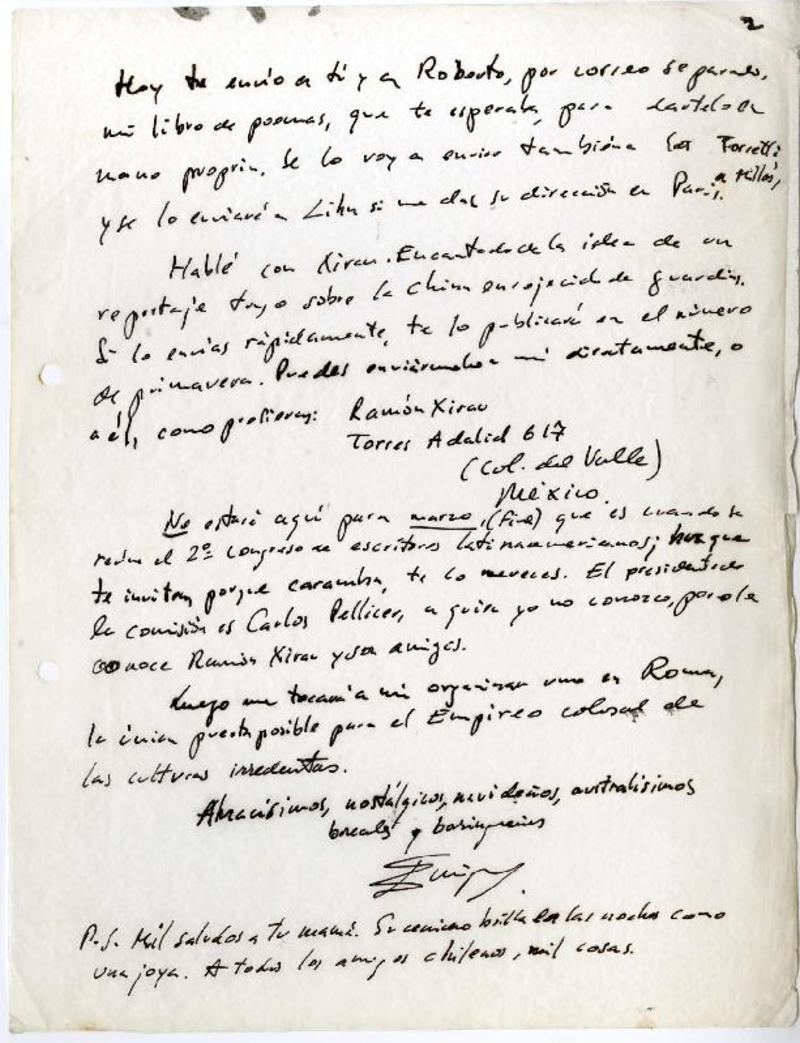 2
Hoy te envío a ti y a Roberto, por correo separado,
mi libro de poemas, que te esperaba, para dártelo en
mano propria. Se lo voy a enviar también a los Torretti
a Millás,
y se lo enviaré a Lihn si me das su dirección en París.
Hablé con Xirau. Encantado de la idea de un
reportaje tuyo sobre la China enrojecida de guardias.
Si lo envías rápidamente, te lo publicará en el número
de primavera. Puedes enviármelo a mí directamente, o
a él, como prefieras: Ramón Xirau
Torres Adalid 617
(Col. del Valle)
México.
No estaré aquí para marzo, (fin) que es cuando se
reúne el 2º Congreso de escritores latinoamericanos;
te invitan porque caramba, te lo mereces. El presidente de
la comisión es Carlos Pellicer, a quien yo no conozco, pero le
conoce Ramón Xirau y son amigos.
Luego me tocará a mí organizar uno en Roma,
la única puerta posible para el Empireo colosal de
las culturas irredentas.
Abracísimos, nostálgicos, navideños, australísimos
boreales y borinqueños
P.S. Mil saludos a tu mamá. Su brilla en las noches como
una joya. A todos los amigos chilenos, mil cosas.